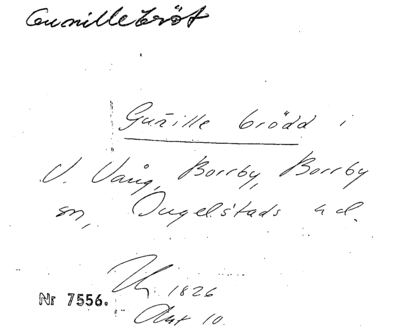 Gunillebröt
Guñille brödd i
V. Vång, Borrby, Borrby
sn, Ingelstads hd.
1826
Akt 10.
Nr 7556.